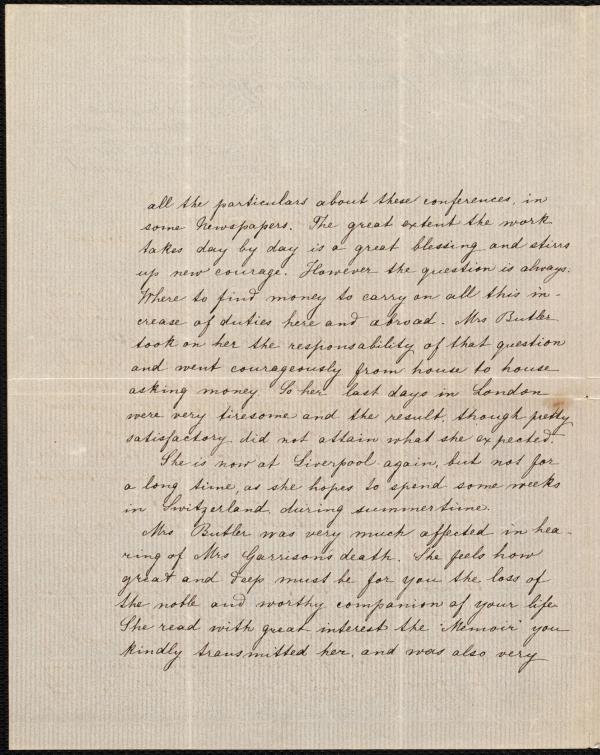 all the particulars about these conferences, in
some Newspapers. The great extent the work
takes day by day is a great blessing and stirrs
up new courage. However the question is always:
Where to find money to carry on all this in-
crease of duties here and abroad. Mrs Butler
took on her the responsability of that question
and went courageously from house to house
asking money. So her last days in London
were very tiresome and the result, though pretty
satisfactory did not attain what she expected.
She is now at Liverpool again, but not for
a long time, as she hopes to spend some weeks
in Switzerland during summertime.
Mrs Butler was very much affected in hea-
ring of Mrs Garrisons death. She feels how
great and deep must be for you the loss of
the noble and worthy companion of your life.
She read with great interest the "Memoir" you
kindly transmitted her, and was also very